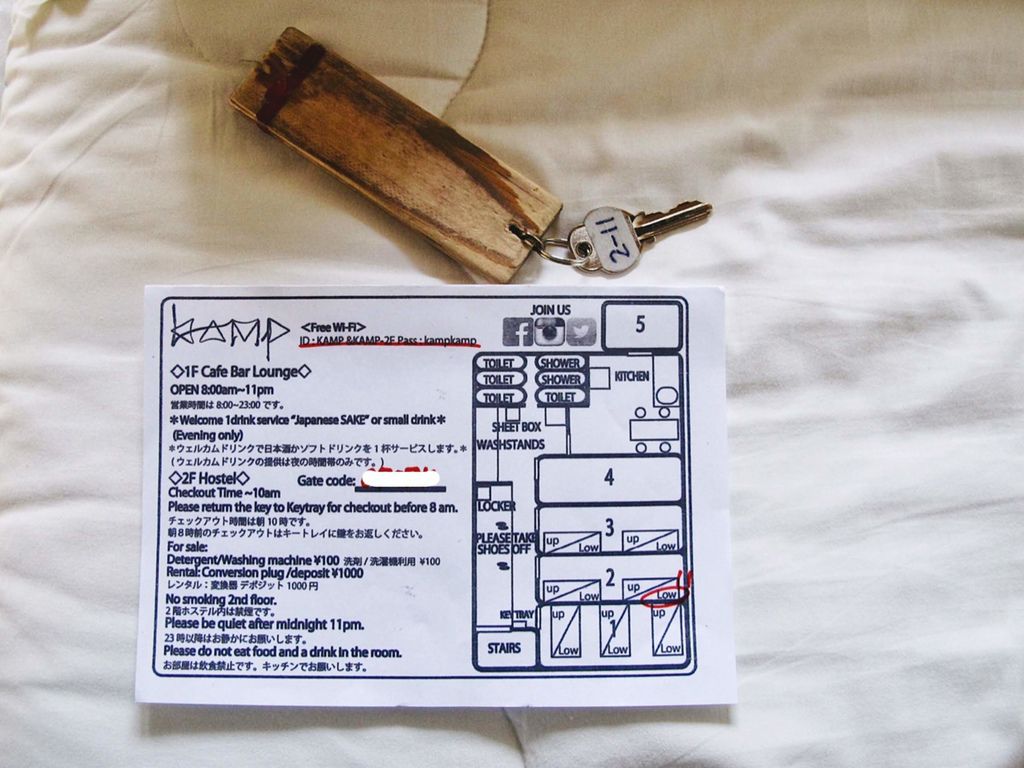 11-2
KAMP
<Free Wi-Fi>
ID : KAMP &KAMP-2F Pass : kampkamp
◇1F Cafe Bar Lounge◇
OPEN 8:00am~11pm
営業時間は 8:00~23:00 です。
*Welcome 1drink service "Japanese SAKE" or small drink*
(Evening only)
*ウェルカムドリンクで日本酒かソフトドリンクを1杯サービスします。*
(ウェルカムドリンクの提供は夜の時間帯のみです。)
◇2F Hostel◇ Gate code:
Checkout Time ~10am
Please return the key to Keytray for checkout before 8 am.
チェックアウト時間は朝 10 時です。
朝8時前のチェックアウトはキートレイに鍵をお返しください。
For sale:
Detergent/Washing machine ¥100 洗剤 / 洗濯機利用 ¥100
Rental: Conversion plug /deposit ¥1000
レンタル:変換器 デポジット 1000 円
No smoking 2nd floor.
2 階ホステル内は禁煙です。
Please be quiet after midnight 11pm.
23 時以降はお静かにお願いします。
Please do not eat food and a drink in the room.
お部屋は飲食禁止です。キッチンでお願いします。
JOIN US
5
TOILET SHOWER
TOILET SHOWER KITCHEN
TOILET TOILET
SHEET BOX
WASHSTANDS
4
LOCKER
3
PLEASE TAKE
SHOES OFF
up Low up Low
2
up Low up Low
KEY TRAY
up up up
1
Low Low Low
STAIRS